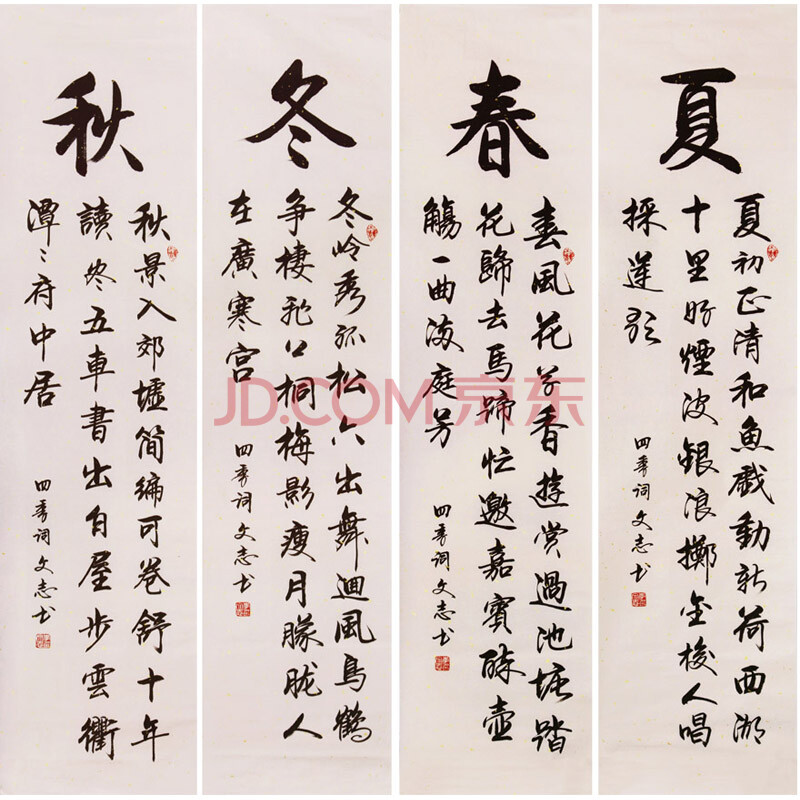 夏
夏初正清和魚戲動新荷西湖
十里好煙波銀浪擲金梭人唱
採蓮歌
四季詞文志书
春
春風花草香遊賞過池塘踏
花歸去馬蹄忙邀嘉賓醉壺
觴一曲滿庭芳
四季詞文志书
冬
冬岭秀孤松六出舞迴風鳥鵲
争棲飛上桐梅影瘦月朦朧人
在廣寒宫
四季詞文志书
秋
秋景入郊墟简編可卷舒十年
讀尽五車書出白屋步雲衢
潭〻府中居
四季詞文志书
JD.COM 京东